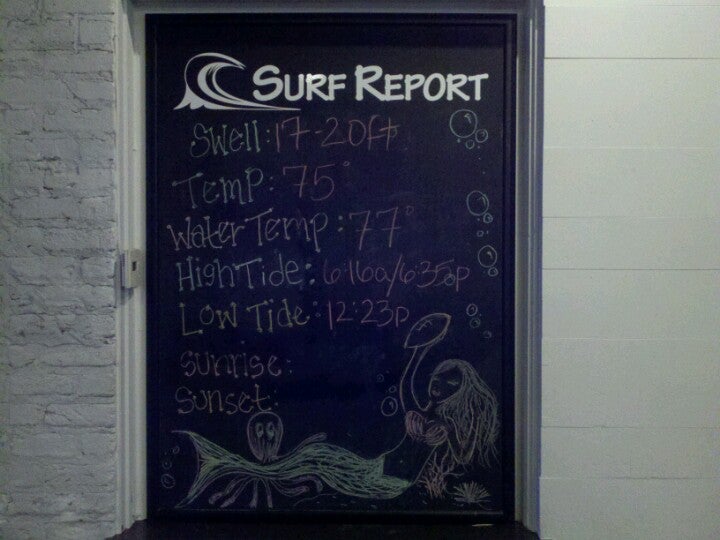 SURF REPORT
Swell: 17-20ft
Temp: 75°
Water Temp: 77°
High Tide: 6:16a/6:35p
Low Tide: 12:23p
sunrise:
Sunset: